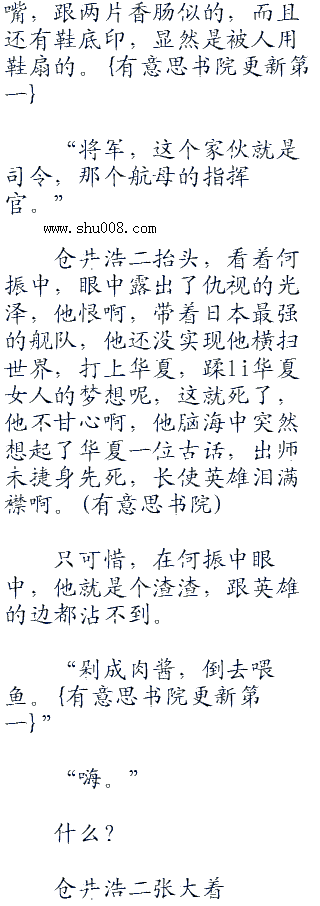 嘴，跟两片香肠似的，而且
还有鞋底印，显然是被人用
鞋扇的。{有意思书院更新第
一}
“将军，这个家伙就是
司令，那个航母的指挥
官。”
www.shu008.com
仓井浩二抬头，看着何
振中，眼中露出了仇视的光
泽，他恨啊，带着日本最强
的舰队，他还没实现他横扫
世界，打上华夏，蹂li华夏
女人的梦想呢，这就死了，
他不甘心啊，他脑海中突然
想起了华夏一位古话，出师
未捷身先死，长使英雄泪满
襟啊。(有意思书院)
只可惜，在何振中眼
中，他就是个渣渣，跟英雄
的边都沾不到。
“剁成肉酱，倒去喂
鱼。{有意思书院更新第
一}”
“嗨。”
什么？
仓井浩二张大着